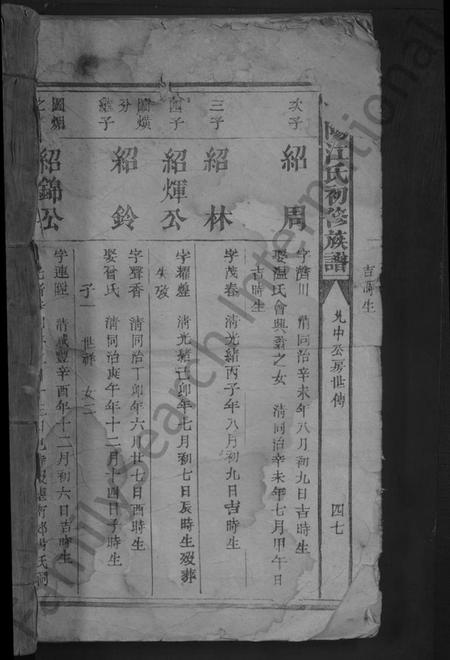 陽江氏初修族譜
允中公房世傳
四七
吉時生
次子
紹周
字濟川 清同治辛未年八月初九日吉時生
娶溫氏會興翁之女 清同治辛未年七月甲午日
吉時生
三子
紹林
字茂春 清光緒丙子年八月初九日吉時生
四子
紹煇公
字耀盤 清光緒己卯年七月初七日辰時生歿葬
失攷
國熉
分
繼子
紹鈴
字聲香 清同治丁卯年六月廿七日酉時生
娶曾氏 清同治庚午年十二月十四日子時生
子一 世祥 女二
國熉
之子
紹錦公
字連陞 清咸豐辛酉年十二月初六日吉時生
FamilySearch International